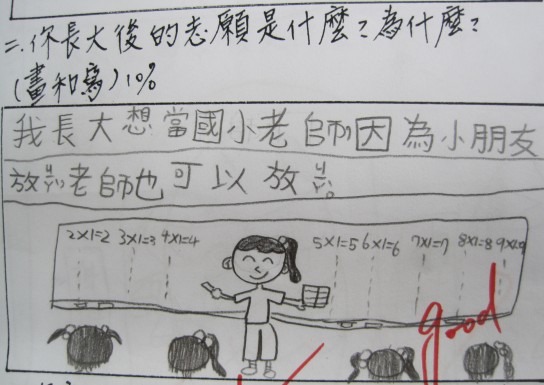 二、你長大後的志願是什麼?為什麼?
(畫和寫)10%
我長大想當國小老師因為小朋友
放ㄐㄧㄚˋ老師也可以放ㄐㄧㄚˋ。
2×1=2 3×1=3 4×1=4 5×1=5 6×1=6 7×1=7 8×1=8 9×1=9
good